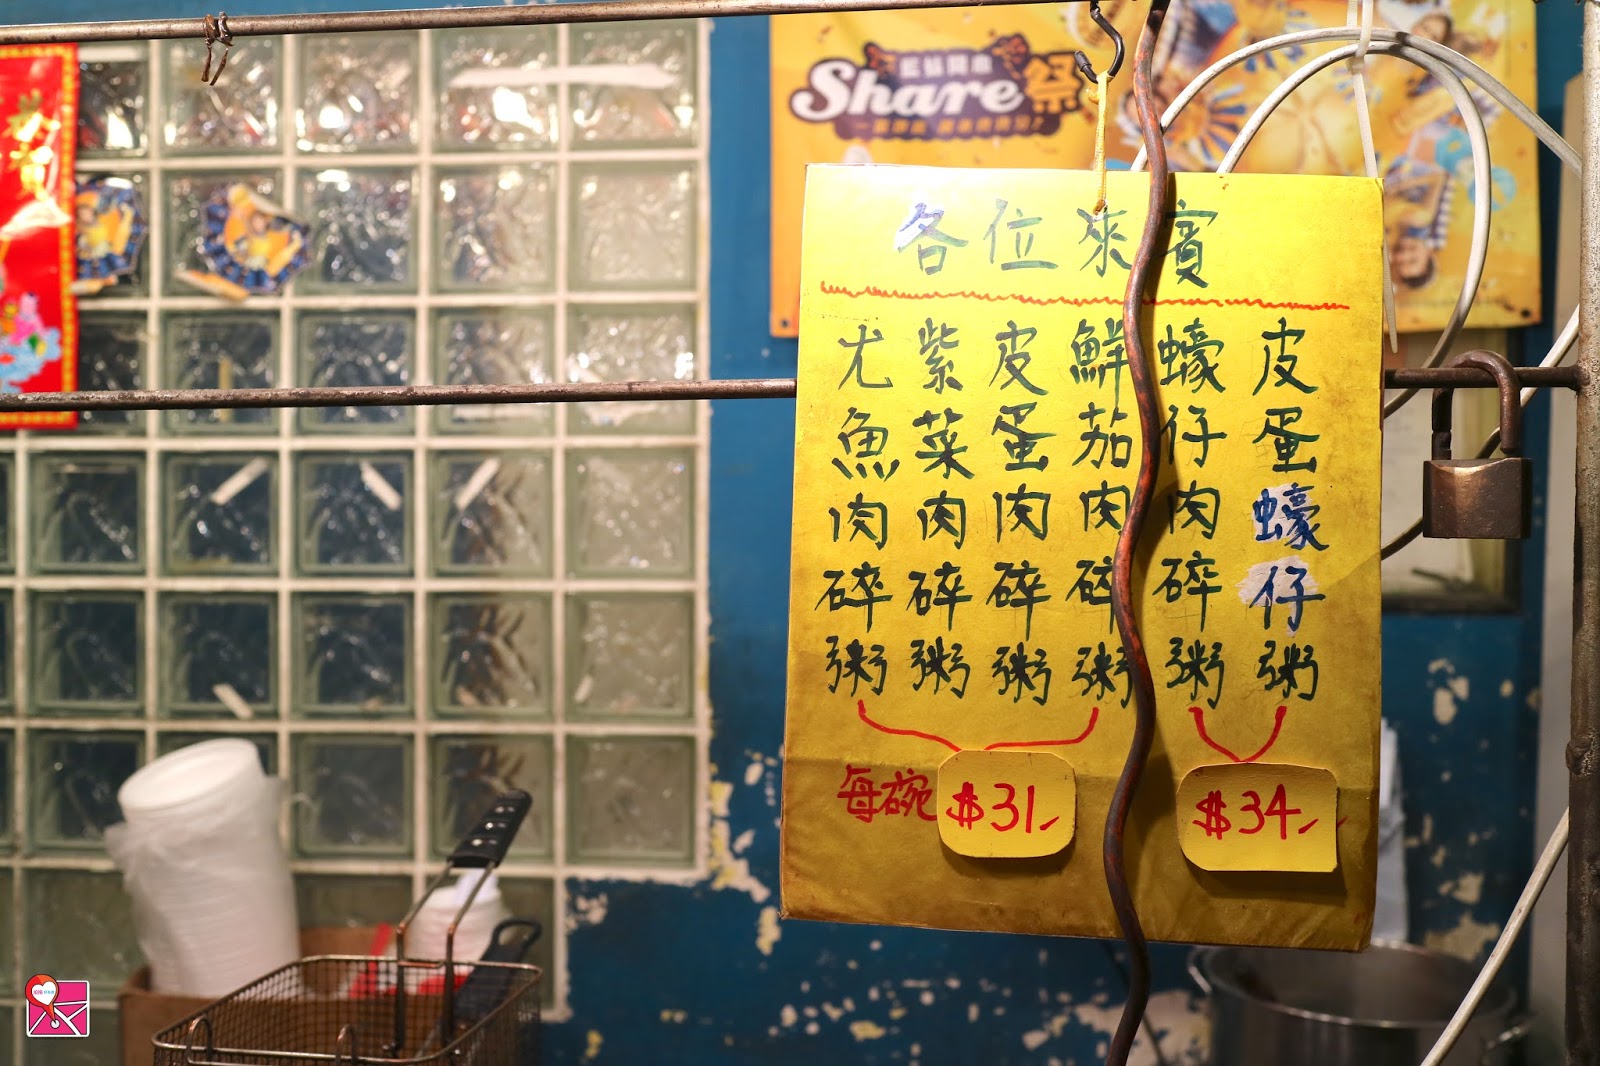 Share祭
各位來賓
皮蛋蠔仔粥
蠔仔肉碎粥
鮮茄肉碎粥
皮蛋肉碎粥
紫菜肉碎粥
尤魚肉碎粥
每碗 $31
$34